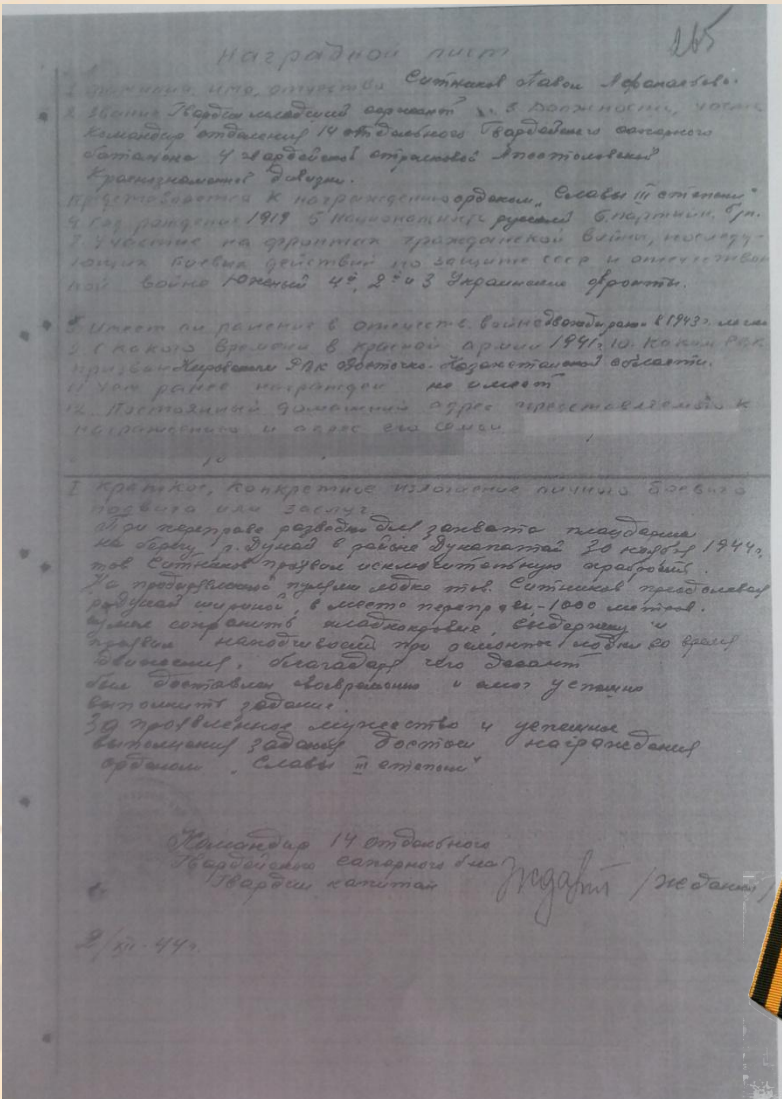 265
Наградной лист
1 Фамилия, имя, отчество Ситников Павел Афанасьевич
2 Звание Гвардии младший сержант 3 Должность, часть
Командир отделения 14 отдельного Гвардейского саперного
батальона 4 гвардейской стрелковой Апостоловской
Краснознаменной дивизии.
Представляется к награждению орденом „Славы III степени"
4 Год рождения 1919 5 Национальность русский 6 Партийн. б/п.
7 Участие на фронтах гражданской войны, последу-
ющих боевых действий по защите СССР и отечествен
ной войне Южный 4й, 2й и 3 Украинские фронты.
8 Имеет ли ранение в отечеств. войне дважды ранен в 1943г.
9 С какого времени в красной армии 1941г. 10. Каким РВК
призван Кировским РВК Восточно-Казахстанской области.
11 Чем ранее награжден не имеет
12. Постоянный домашний адрес представляемого к
награждению и адрес его семьи
I Краткое, конкретное изложение личного боевого
подвига или заслуг
При переправе разведки для захвата плацдарма
на берегу р. Дунай в районе Дунапатай 30 ноября 1944г.
тов Ситников проявил исключительную храбрость.
На пробитой пулями лодке тов. Ситников преодолевая
р. Дунай шириной, в месте перепр - 1000 метров.
сумел сохранить хладнокровие, выдержку и
проявил находчивость при ремонте лодки во время
движения, благодаря чего десант
был доставлен своевременно и смог успешно
выполнить задание.
За проявленное мужество и успешное
выполнения задания достоин награждения
орденом „Славы III степени"
Командир 14 отдельного
Гвардейского саперного б-на
Гвардии капитан
2/XII-44г